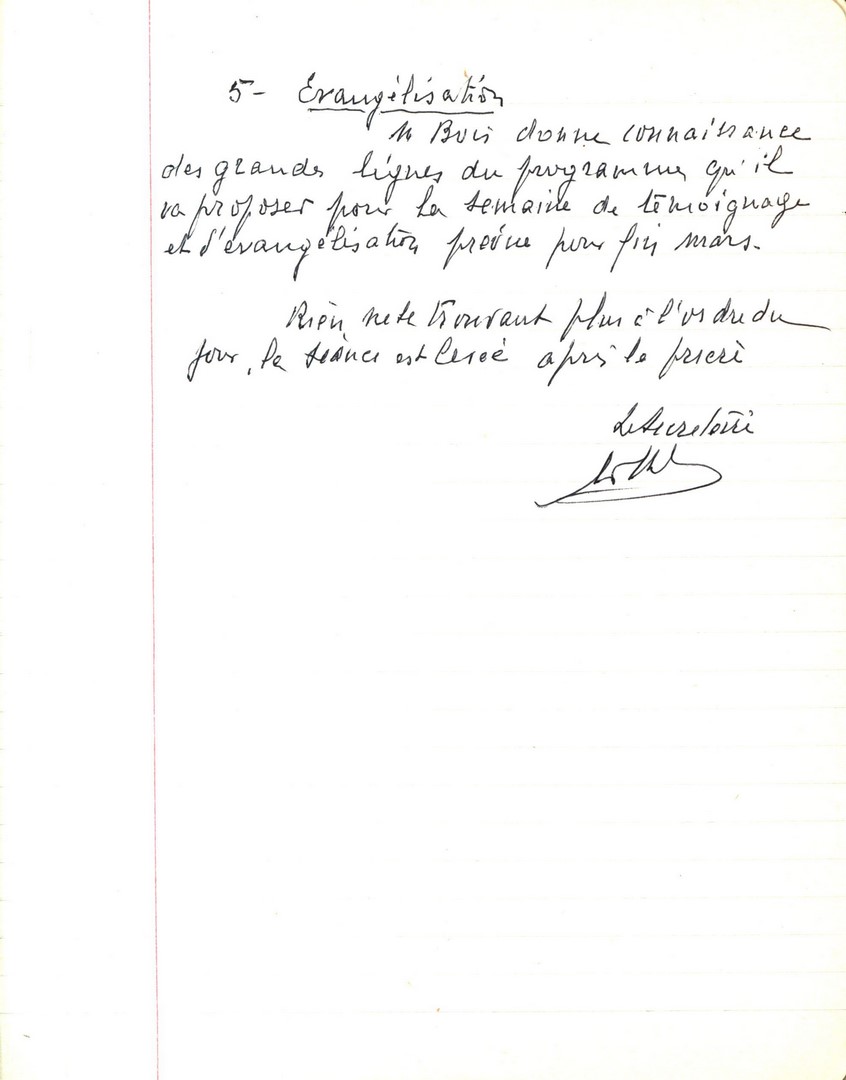 5- Evangélisation
M Bois donne connaissance
des grandes lignes du programme qu'il
va proposer pour la semaine de témoignage
et d'évangélisation prévue pour fin mars.
Rien ne se trouvant plus à l'ordre du
jour, la séance est levée après la prière
Le Secretaire